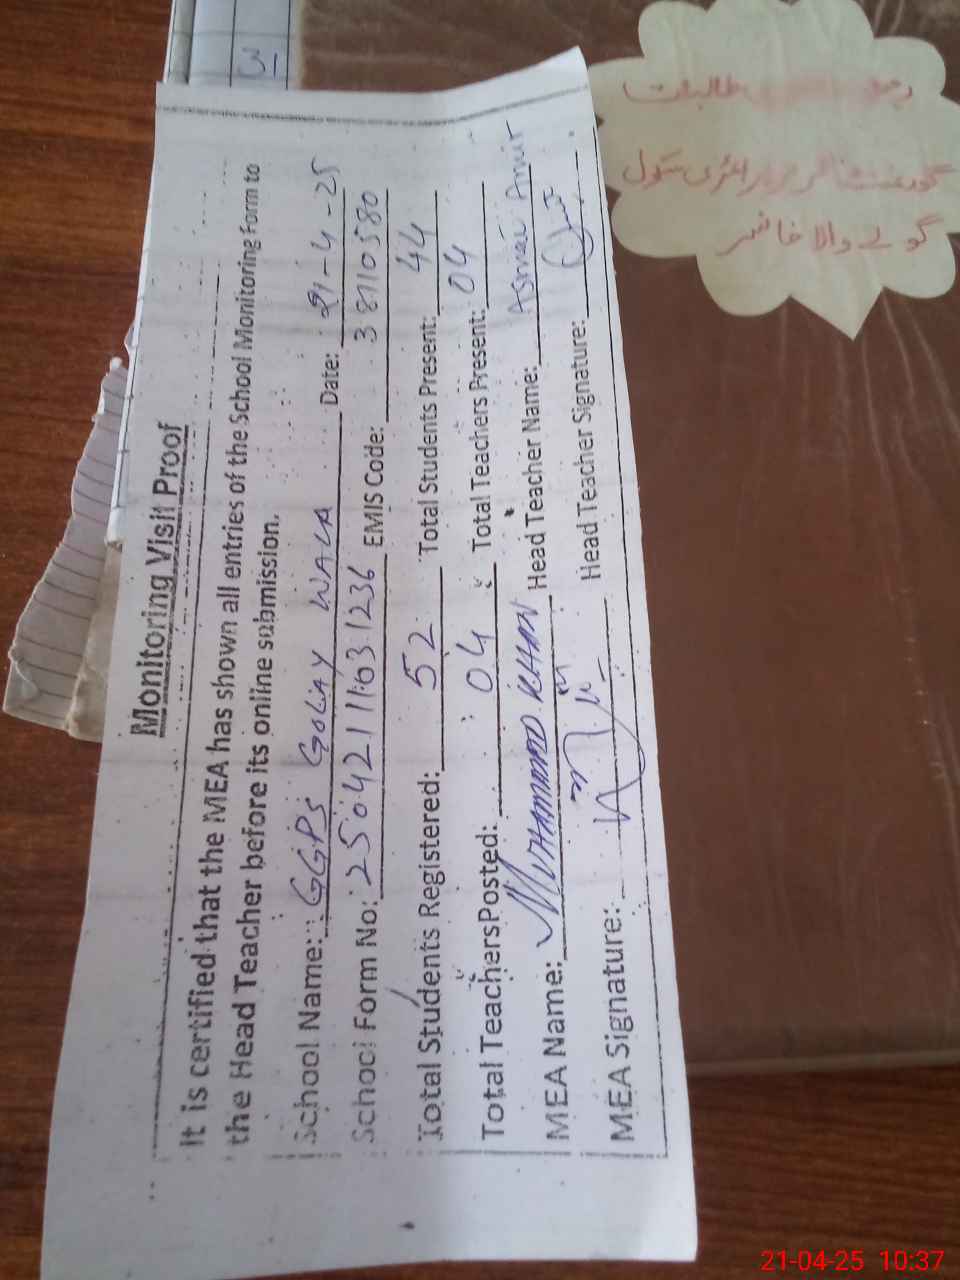 Monitoring Visit Proof
It is certified that the MEA has shown all entries of the School Monitoring Form to
the Head Teacher before its online submission.
School Name: GGPS GOLAY WALA Date: 21-4-25
School Form No: 25042111631236 EMIS Code: 38110580
Total Students Registered: 52 Total Students Present: 44
Total TeachersPosted: 04 Total Teachers Present: 04
MEA Name: MUHAMMAD KHAN Head Teacher Name:
MEA Signature: Head Teacher Signature:
طالبات
گورنمنٹ پرائمری سکول
گولے والا
21-04-25 10:37